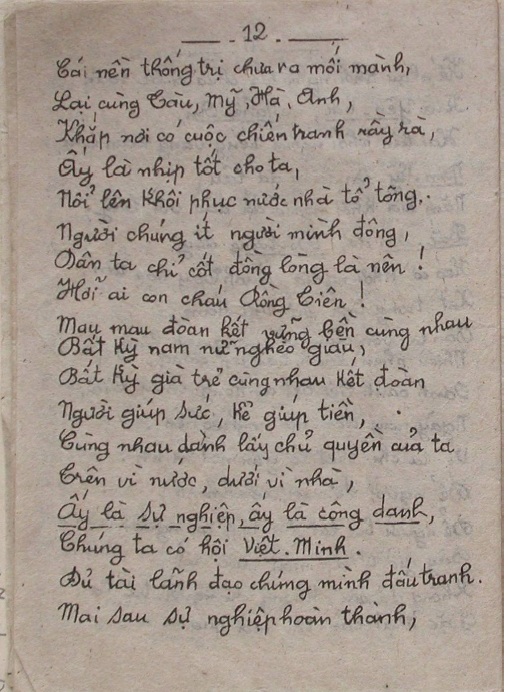 12
Cái nền thống trị chưa ra mối mành,
Lại cùng Tàu, Mỹ, Hà, Anh,
Khắp nơi có cuộc chiến tranh rầy rà,
Ấy là nhịp tốt cho ta,
Nổi lên khôi phục nước nhà tổ tông,.
Người chúng ít người mình đông,
Dân ta chỉ cốt đồng lòng là nên !
Hỡi ai con cháu Rồng Tiên !
Mau mau đoàn kết vững bền cùng nhau
Bất kỳ nam nữ nghèo giầu,
Bất kỳ già trẻ cùng nhau kết đoàn
Người giúp sức, kẻ giúp tiền,
Cùng nhau dành lấy chủ quyền của ta
Trên vì nước, dưới vì nhà,
Ấy là sự nghiệp, ấy là công danh,
Chúng ta có hội Việt. Minh.
Đủ tài lãnh đạo chúng mình đấu tranh.
Mai sau sự nghiệp hoàn thành,